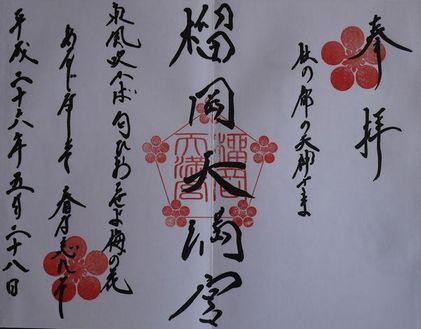 奉拝
杜の都の天神さま
榴岡天満宮
東風吹かば匂ひおこせよ梅の花
あるじなしとて春を忘るな
平成二十六年五月二十八日